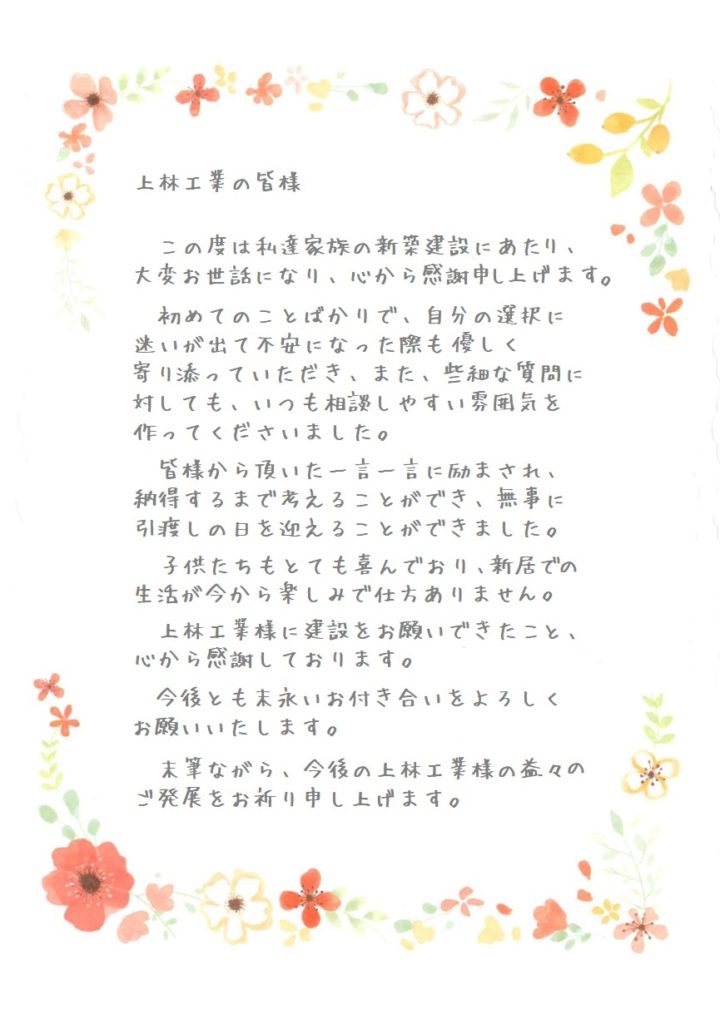 上林工業の皆様
この度は私達家族の新築建設にあたり、
大変お世話になり、心から感謝申し上げます。
初めてのことばかりで、自分の選択に
迷いが出て不安になった際も優しく
寄り添っていただき、また、些細な質問に
対しても、いつも相談しやすい雰囲気を
作ってくださいました。
皆様から頂いた一言一言に励まされ、
納得するまで考えることができ、無事に
引渡しの日を迎えることができました。
子供たちもとても喜んでおり、新居での
生活が今から楽しみで仕方ありません。
上林工業様に建設をお願いできたこと、
心から感謝しております。
今後とも末永いお付き合いをよろしく
お願いいたします。
末筆ながら、今後の上林工業様の益々の
ご発展をお祈り申し上げます。